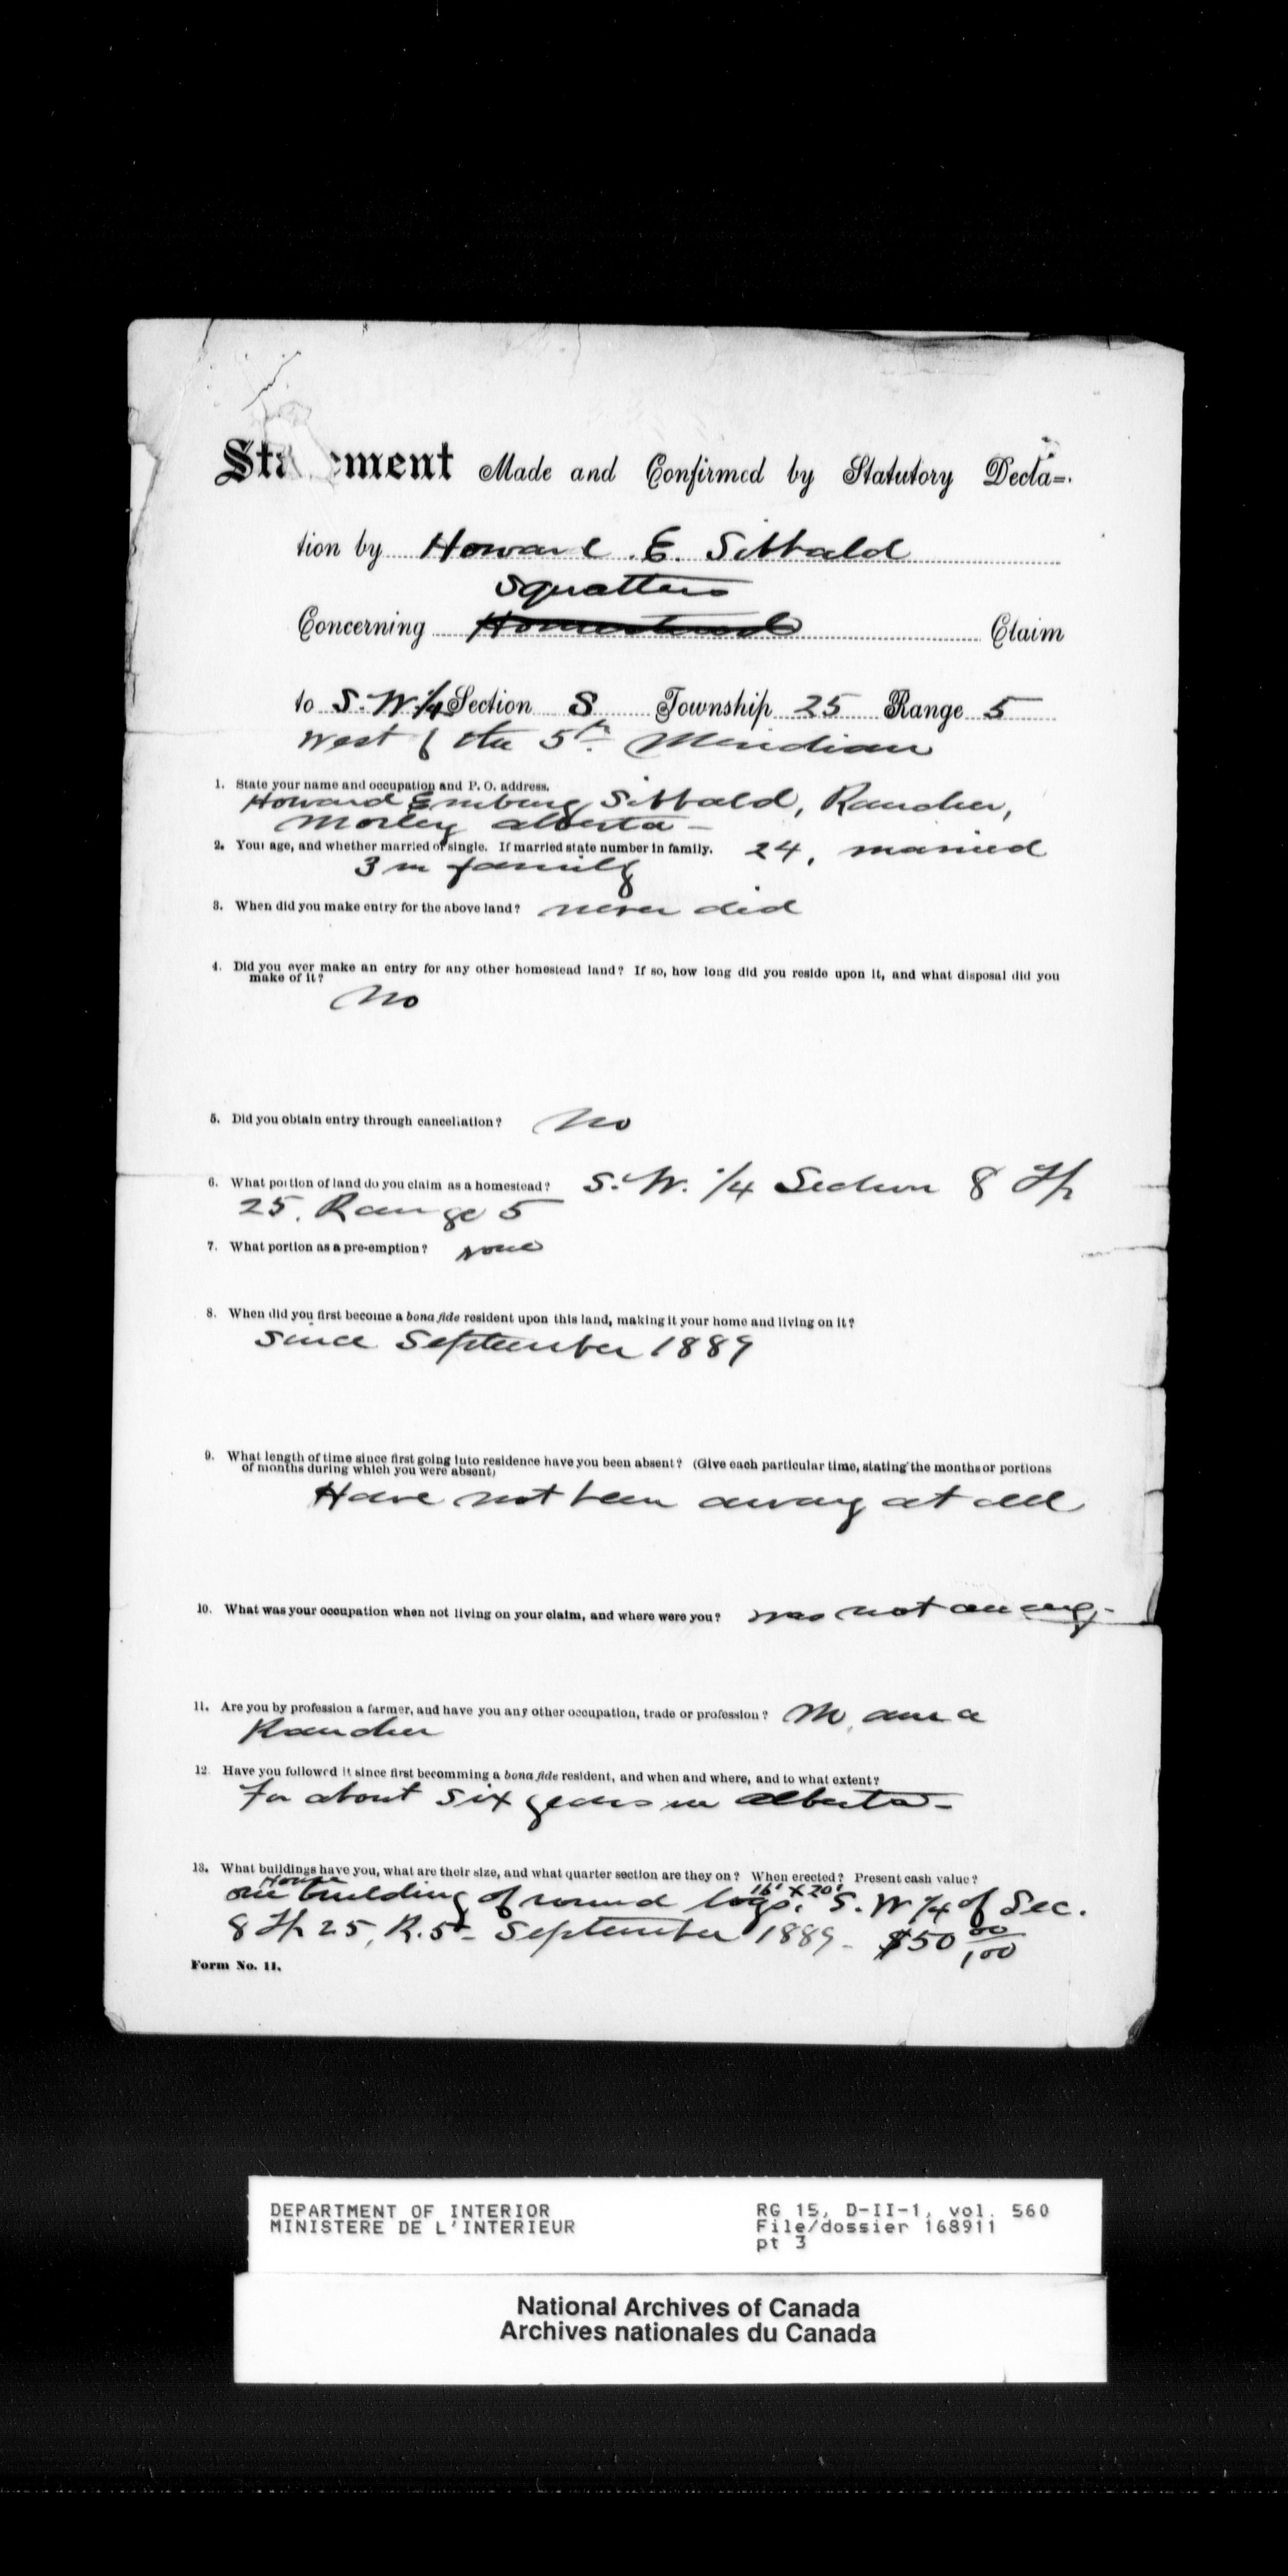 Statement Made and Confirmed by Statutory Decla=
tion by Howard E. Sibbald
Squatters
Concerning Homestead Claim
to S. W. 1/4 Section 8 Township 25 Range 5
West of the 5th Meridian
1. State your name and occupation and P. O. address.
Howard Sibbald, Rancher,
Morley Alberta -
2. Your age, and whether married or single. If married state number in family. 24, married
3 in family
3. When did you make entry for the above land? never did
4. Did you ever make an entry for any other homestead land? If so, how long did you reside upon it, and what disposal did you
make of it?
No
5. Did you obtain entry through cancellation? No
6. What portion of land do you claim as a homestead? S. W. 1/4 Section 8 Tp
25. Range 5
7. What portion as a pre-emption? None
8. When did you first become a bona fide resident upon this land, making it your home and living on it?
Since September 1889
9. What length of time since first going into residence have you been absent? (Give each particular time, stating the months or portions
of months during which you were absent)
Have not been away at all
10. What was your occupation when not living on your claim, and where were you? was not away.-
11. Are you by profession a farmer, and have you any other occupation, trade or profession? am a
Rancher
12. Have you followed it since first becomming a bona fide resident, and when and where, and to what extent?
For about six years in Alberta -
13. What buildings have you, what are their size, and what quarter section are they on? When erected? Present cash value?
House 16' x 20'
one building of round logs. S. W 1/4 of Sec.
8 Tp 25, R. 5 - September 1889 - $50 00/100
Form No. 11.
DEPARTMENT OF INTERIOR
MINISTERE DE L'INTERIEUR
RG 15, D-II-1, vol. 560
File/dossier 168911
pt 3
National Archives of Canada
Archives nationales du Canada